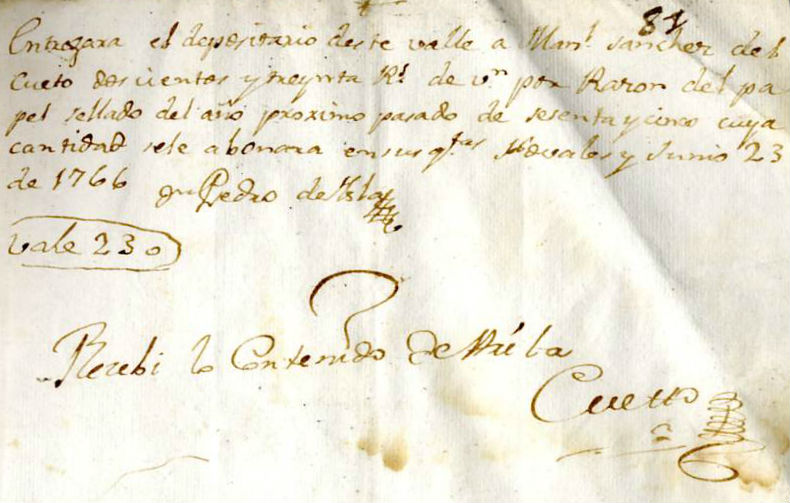 81
Entregara el depositario deste valle a Manl. sanchez del
Cueto doscientos y treynta Rs. de vn por Razon del pa
pel sellado del año proximo pasado de sesenta y cinco cuya
cantidad sele abonara ensus qtas y Junio 23
de 1766 Pedro de Isla
Vale 230
Rezebi lo Contenido de
Cueto